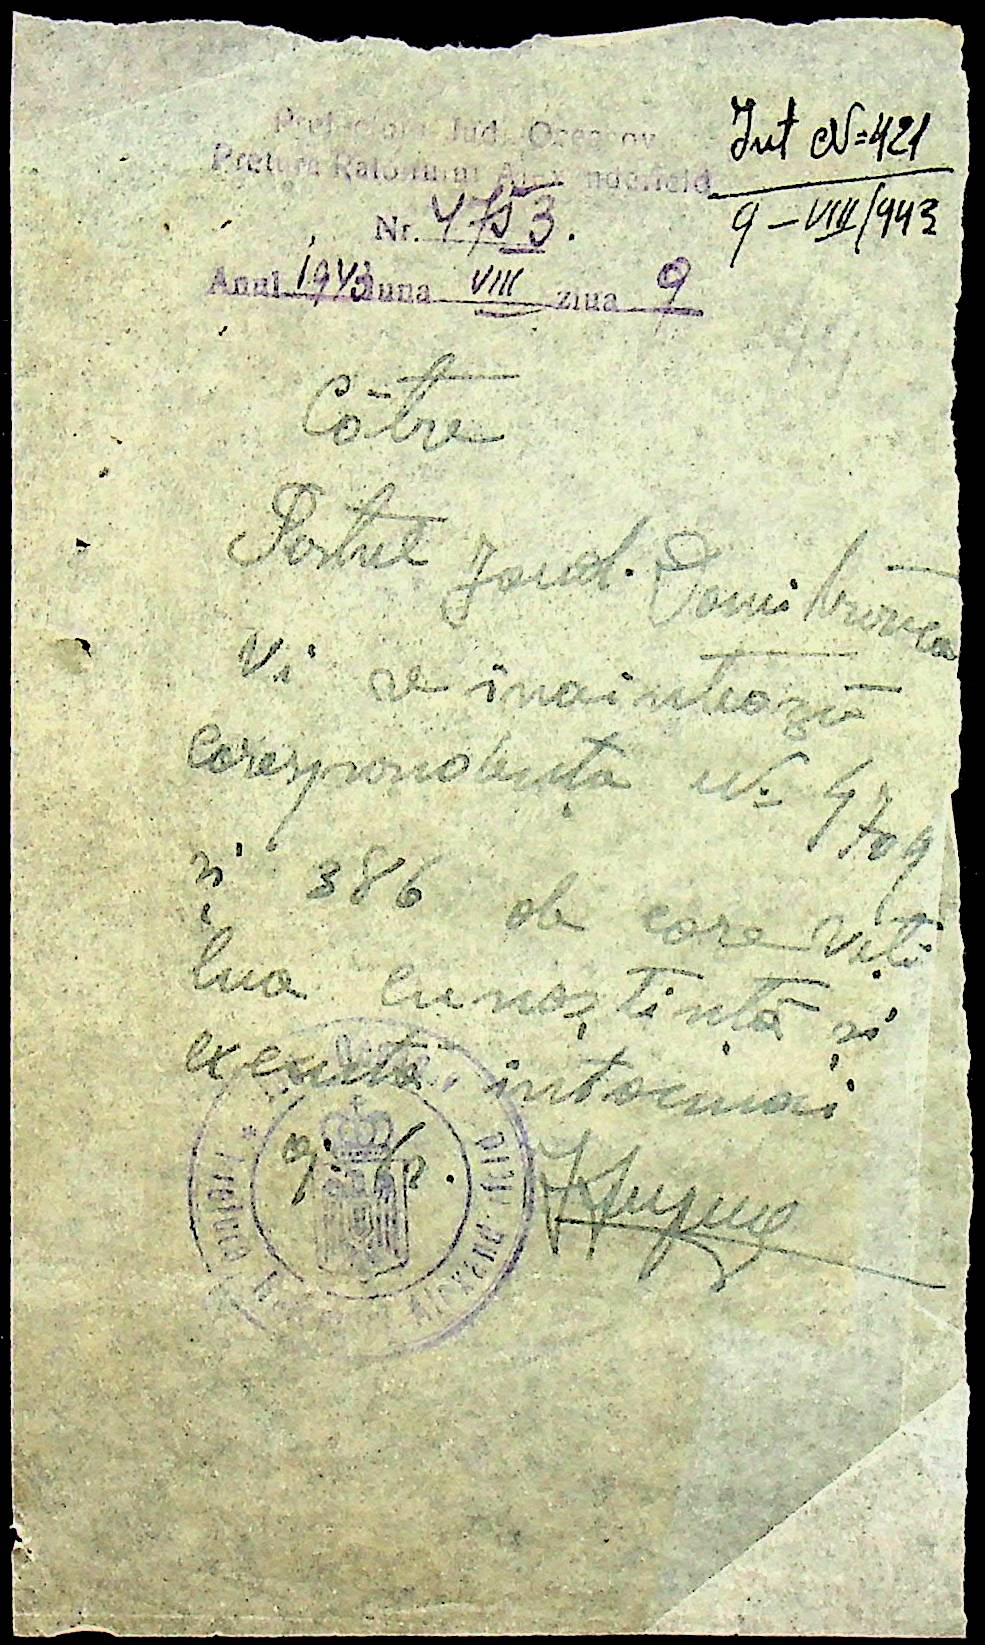 Prefectura Jud. Oceacov
Pretura Raionului Alexanderfeld
Int N=421
9-VIII/943
Nr. 4753.
Anul 1943 luna VIII ziua 9
Către
Postul Jand.
Vi se înaintează
corespondența No 4709
și 386 de care veți
lua cunoștință și
executa întocmai